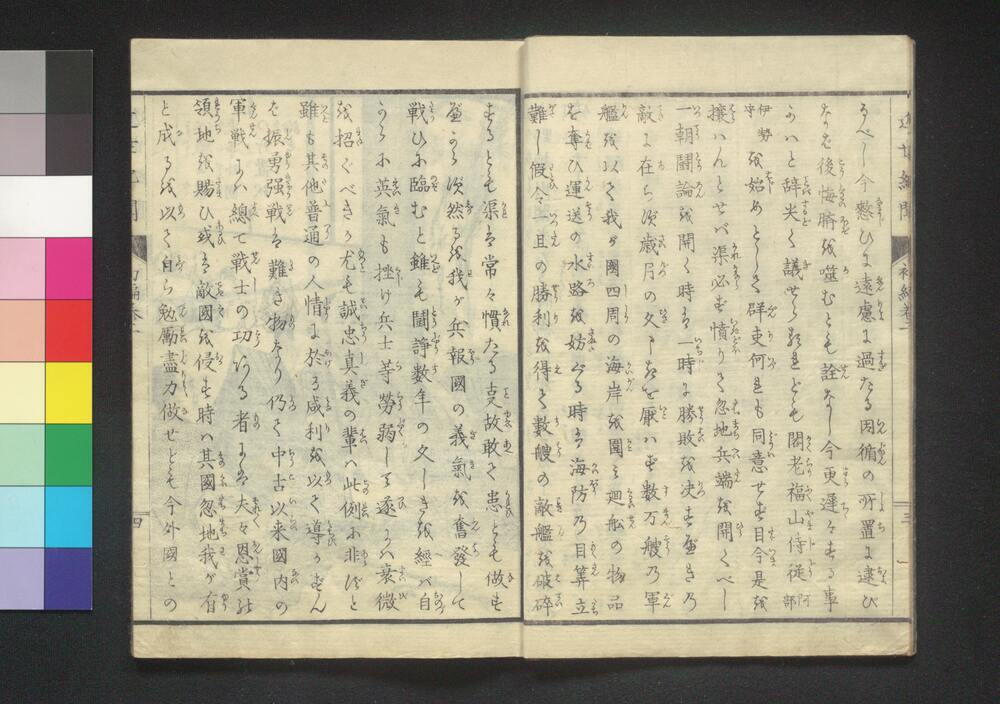 るべし今憖ひに遠慮に過たる因循の所置に逮ひ
なば後悔臍を噬むとも詮なし今更遲々する事
かハと辞失く議せられども閣老福山侍從阿部
伊勢守を始めとしき群吏何れも同意せず目今是を
攘はんとせバ渠必ず憤りて忽地兵端を開くべし
一朝鬪論を開く時ハ一時に勝敗を决すべき乃
敵に在ち須歳月の久しきを厭ハず數万艘乃軍
艦を以て我が國四周の海岸を圍み廻船の物品
を奪ひ運送の水路を妨ぐる時ハ海防乃目算立
難し假令一旦の勝利を得て數艘の敵艦を破碎
するとも渠ハ常々慣たる叓故敢て患とも做ず
然るを我が兵報國の義氣を奮發して
戰ひに臨むと雖も鬪諍數年の久しきを經バ自
から英氣も挫け兵士等勞弱して遂にハ衰微
を招ぐべきか尤も誠忠真義の輩ハ此例に非ずと
雖も其他普通の人情に於る咸利を以て導かずん
ば振勇强戰ハ難き物なり仍て中古以来國内の
軍戰にハ總て戰士の功ある者にハ夫々恩賞
領地を賜ひ或ハ敵國を侵す時ハ其國忽地我が有
と成るを以て自ら勉勵盡力做せども今外國との
四